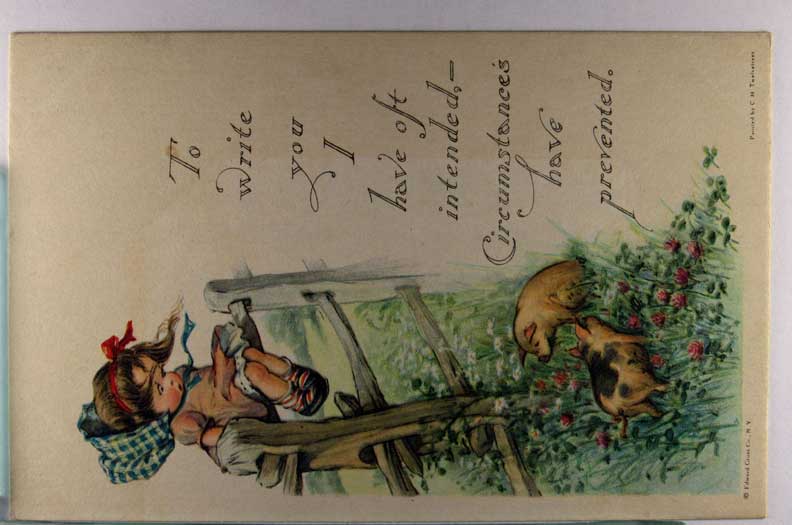 To
write
you
I
have oft
intended,—
Circumstances
have
prevented.
© Edward Gross Co., N.Y.
Painted by C. H. Twelvetrees